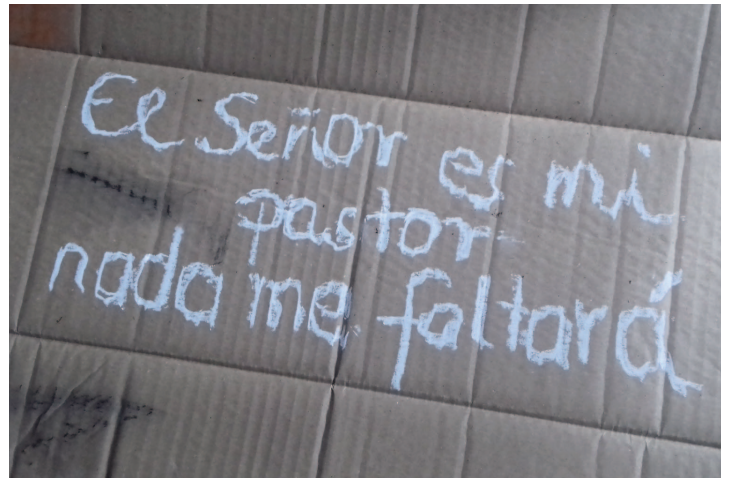 El Señor es mi
pastor
nada me faltará